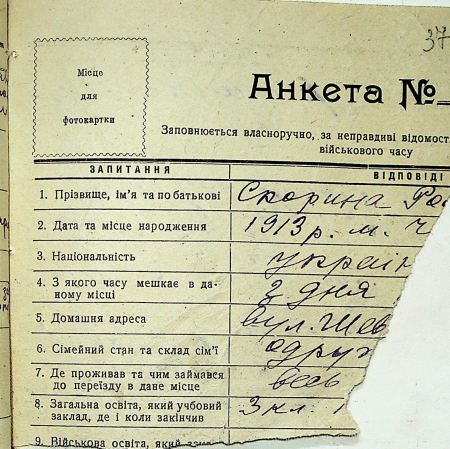 37
Місце
для
фотокартки
Анкета №
Заповнюється власноручно, за неправдиві відомост
військового часу
ЗАПИТАННЯ ВІДПОВІДІ
1. Прізвище, ім'я та по батькові Скорина
2. Дата та місце народження 1913 р. м. Ч
3. Національність україн
4. З якого часу мешкає в да-
ному місці З дня
5. Домашня адреса вул. Шев
6. Сімейний стан та склад сім'ї одруж
7. Де проживав та чим займався
до переїзду в дане місце весь
8. Загальна освіта, який учбовий
заклад, де і коли закінчив 3 кл.
9. Військова освіта, який